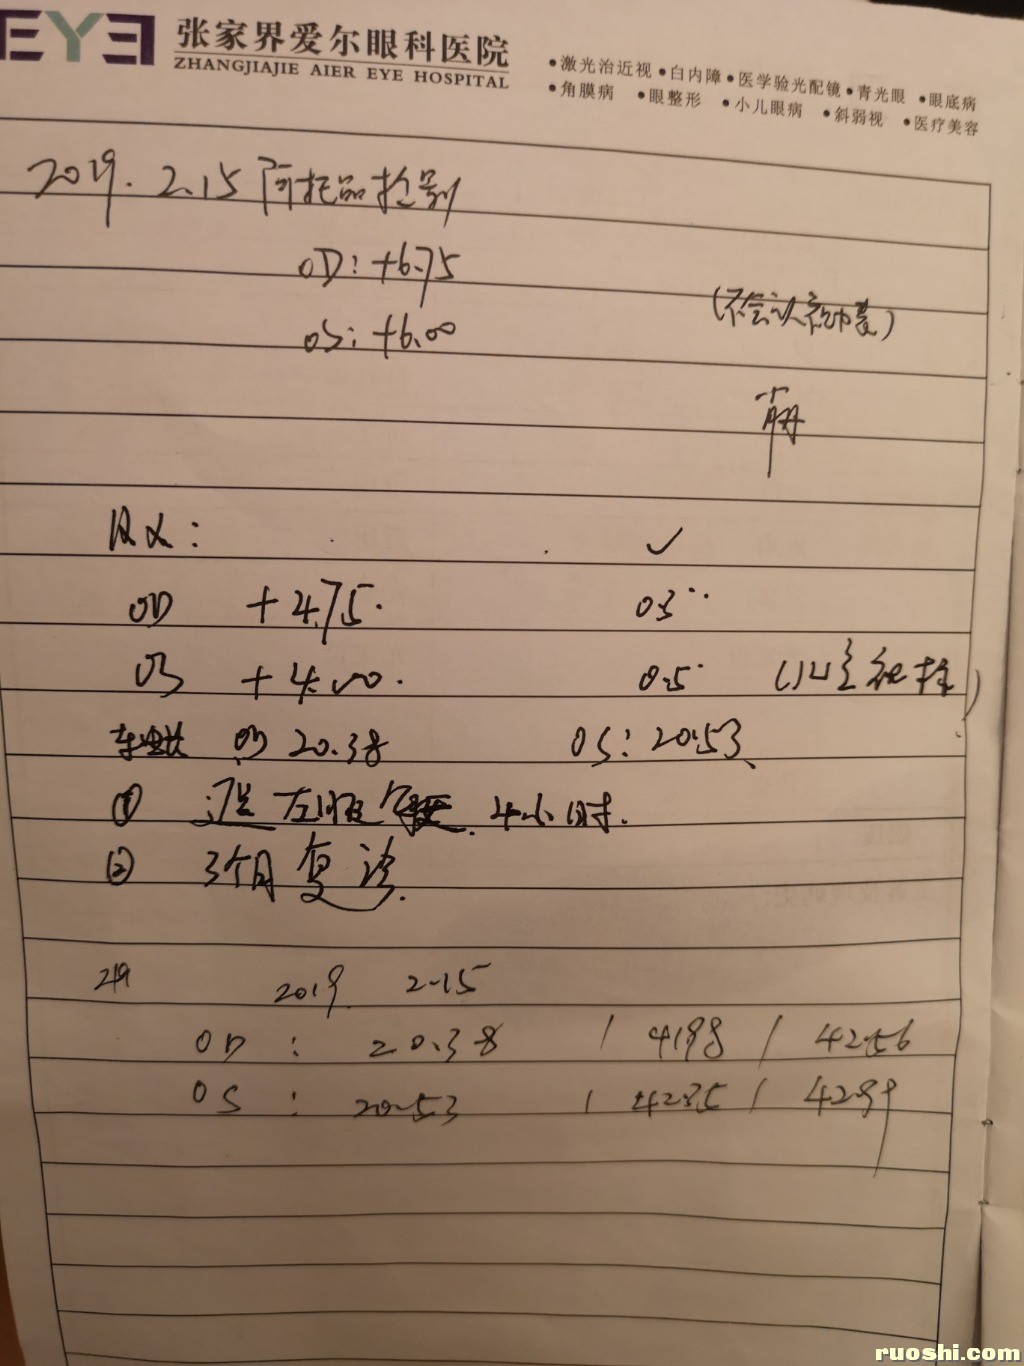 EYE 张家界爱尔眼科医院
ZHANGJIAJIE AIER EYE HOSPITAL
•激光治近视 •白内障 •医学验光配镜 •青光眼 •眼底病
•角膜病 •眼整形 •小儿眼病 •斜弱视 •医疗美容
2019. 2.15 阿托品检影
OD: +6.75
OS: +6.00
(不会认视力表)
OD +4.75
OS +4.00. 0.5
OD 20.38 OS: 20.53
① 遮左眼 4小时.
② 3个月复诊.
2019 2-15
OD : 20.38 / 41.98 / 42.56
OS : 20.53 / 42.35 / 42.99
ruoshi.com